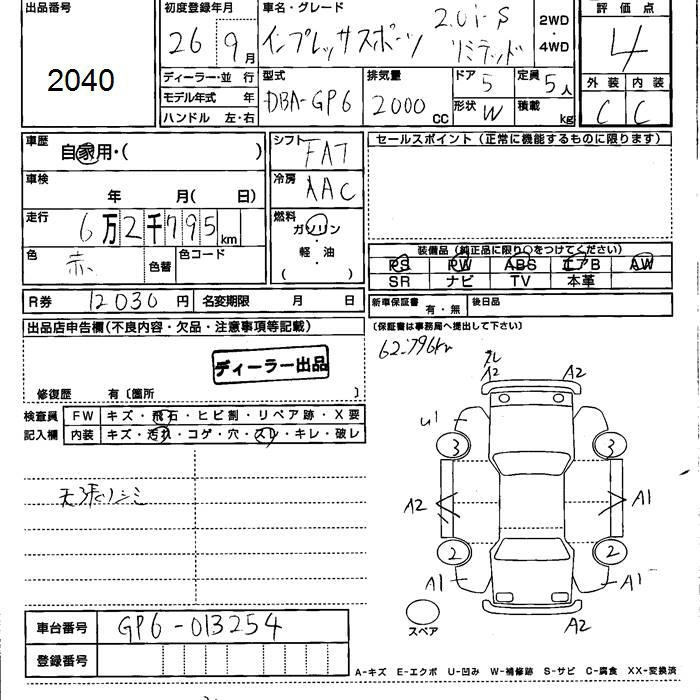 出品番号
2040
初度登録年月
26 9月
車名・グレード
インプレッサスポーツ 2.0i-S リミテッド
2WD
・
4WD
評価点
4
外装 内装
C C
ディーラー・並行
モデル年式 年
ハンドル 左・右
型式
DBA-GP6
排気量
2000 CC
ドア 5
形状 W
定員 5人
積載 kg
車歴
自家用・( )
車検
年 月( 日)
走行
6万2千795km
色
赤
色替
色コード
シフト
FAT
冷房
AAC
燃料
ガソリン
・
軽・油
( )
セールスポイント(正常に機能するものに限ります)
装備品(純正品に限り○をつけてください)
PS PW ABS エアB AW
SR ナビ TV 本革
R券 12030円 名変期限 月 日
新車保証書 有・無 後日品
(保証書は事務局へ提出して下さい)
出品店申告欄(不良内容・欠品・注意事項等記載)
ディーラー出品
修復歴 有〔箇所 〕
62.796km
検査員
記入欄
FW キズ・飛石・ヒビ割・リペア跡・X要
内装 キズ・汚れ・コゲ・穴・スレ・キレ・破レ
天張りシミ
A2 A2
U1
3 3
A2 A1
2 2
A1 A1
A2
スペア
車台番号 GP6-013254
登録番号
A-キズ E-エクボ U-凹み W-補修跡 S-サビ C-腐食 XX-変換済